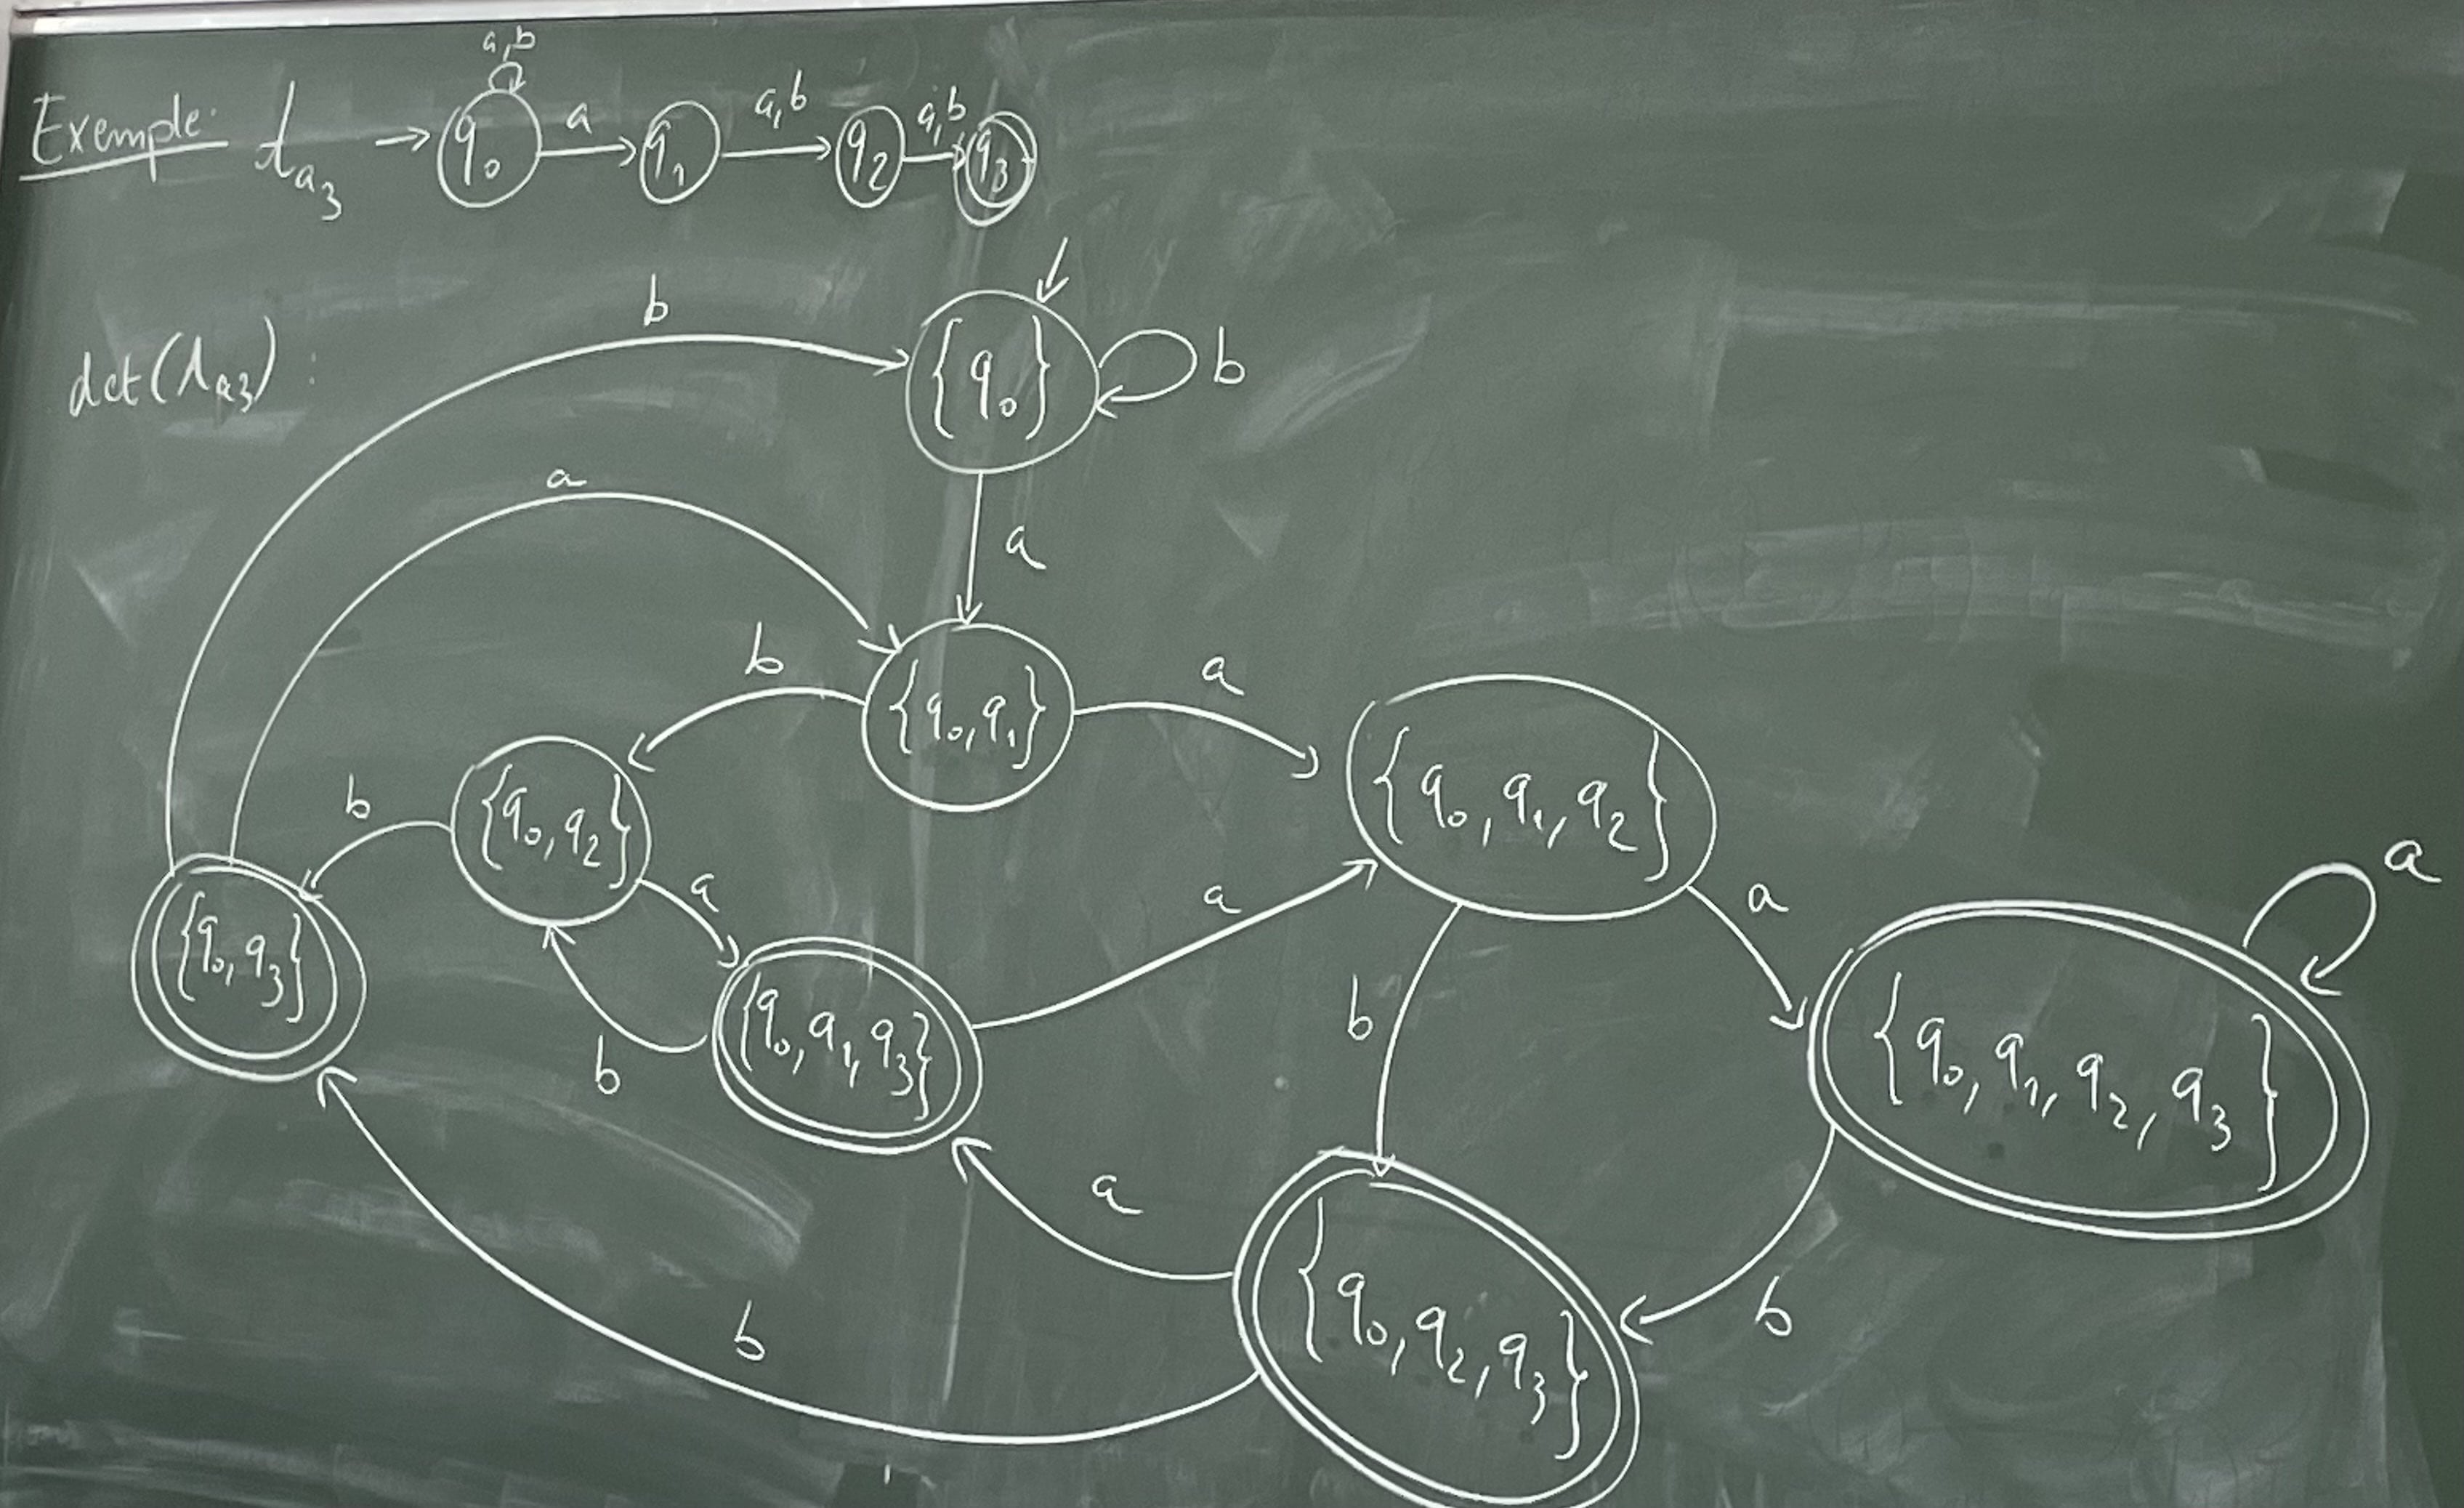 Exemple: A_{a_3} → q_0 a,b a q_1 a,b q_2 a,b q_3
det(A_{a_3}) :
b {q_0} b
a
a
b {q_0, q_1} a
b {q_0, q_2} {q_0, q_1, q_2}
a a a a
{q_0, q_3} {q_0, q_1, q_3} b {q_0, q_1, q_2, q_3}
b
a
b {q_0, q_2, q_3} b